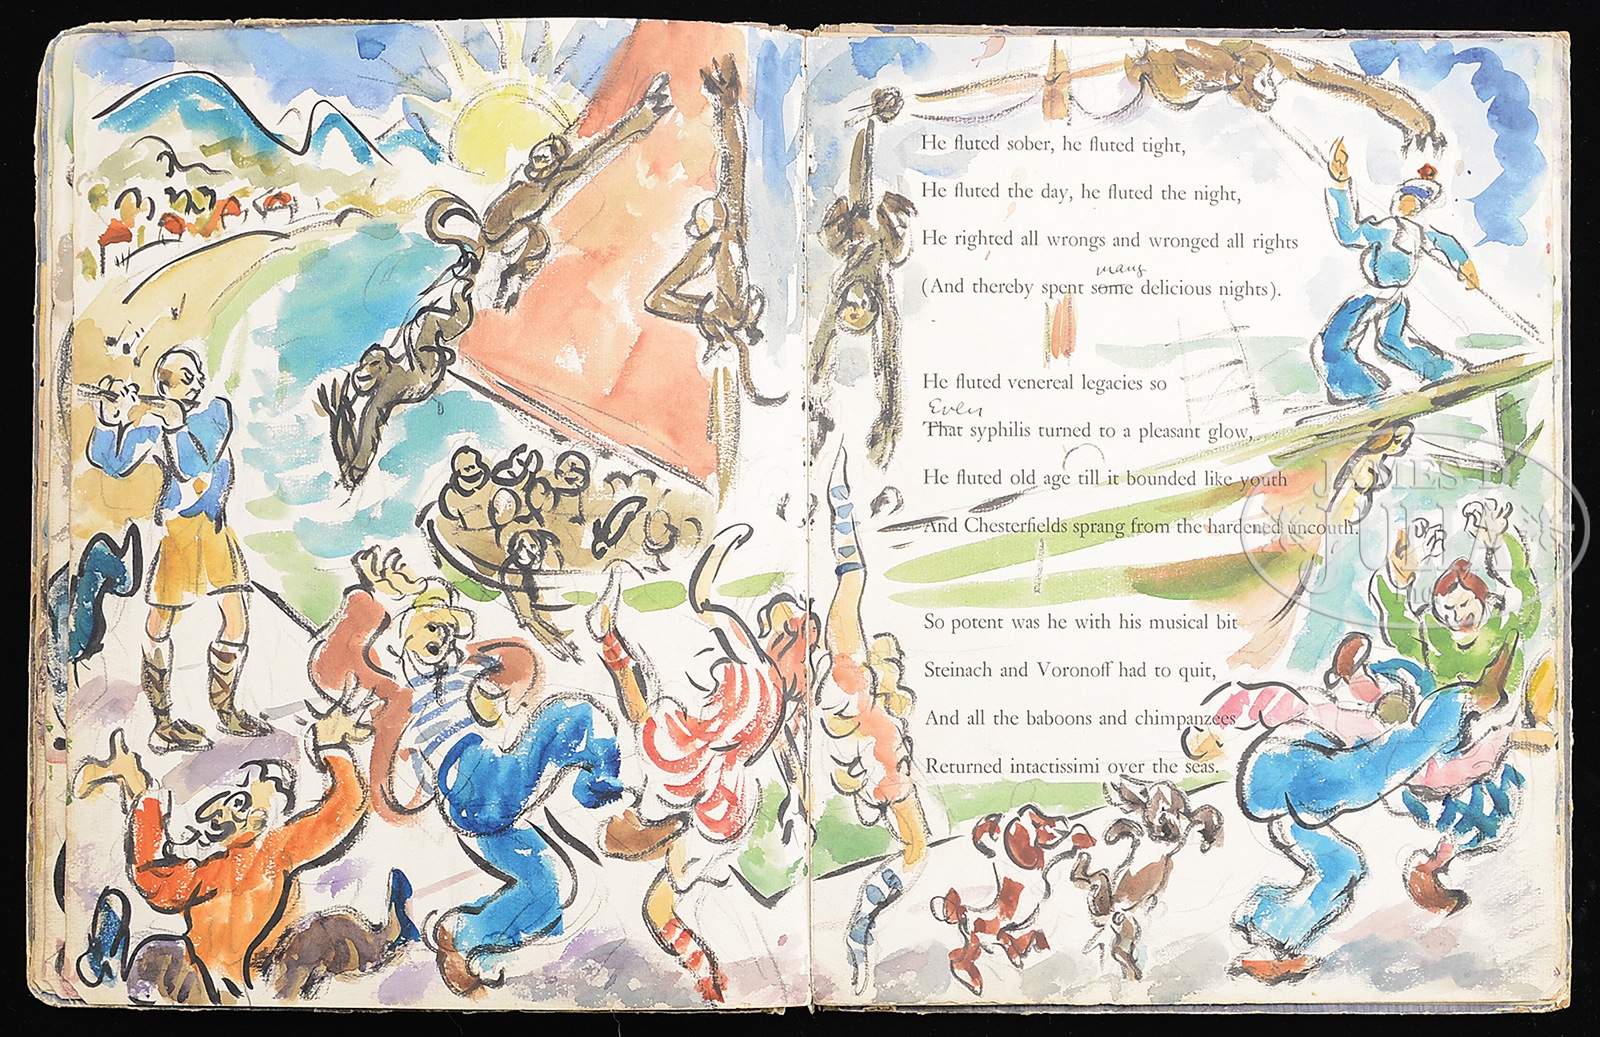 He fluted sober, he fluted tight,
He fluted the day, he fluted the night,
He righted all wrongs and wronged all rights
many
(And thereby spent some delicious nights).
He fluted venereal legacies so
Even
That syphilis turned to a pleasant glow,
He fluted old age till it bounded like youth
And Chesterfields sprang from the hardened uncouth.
So potent was he with his musical bit
Steinach and Voronoff had to quit,
And all the baboons and chimpanzees
Returned intactissimi over the seas.
JAMES D.
JULIA
Inc.